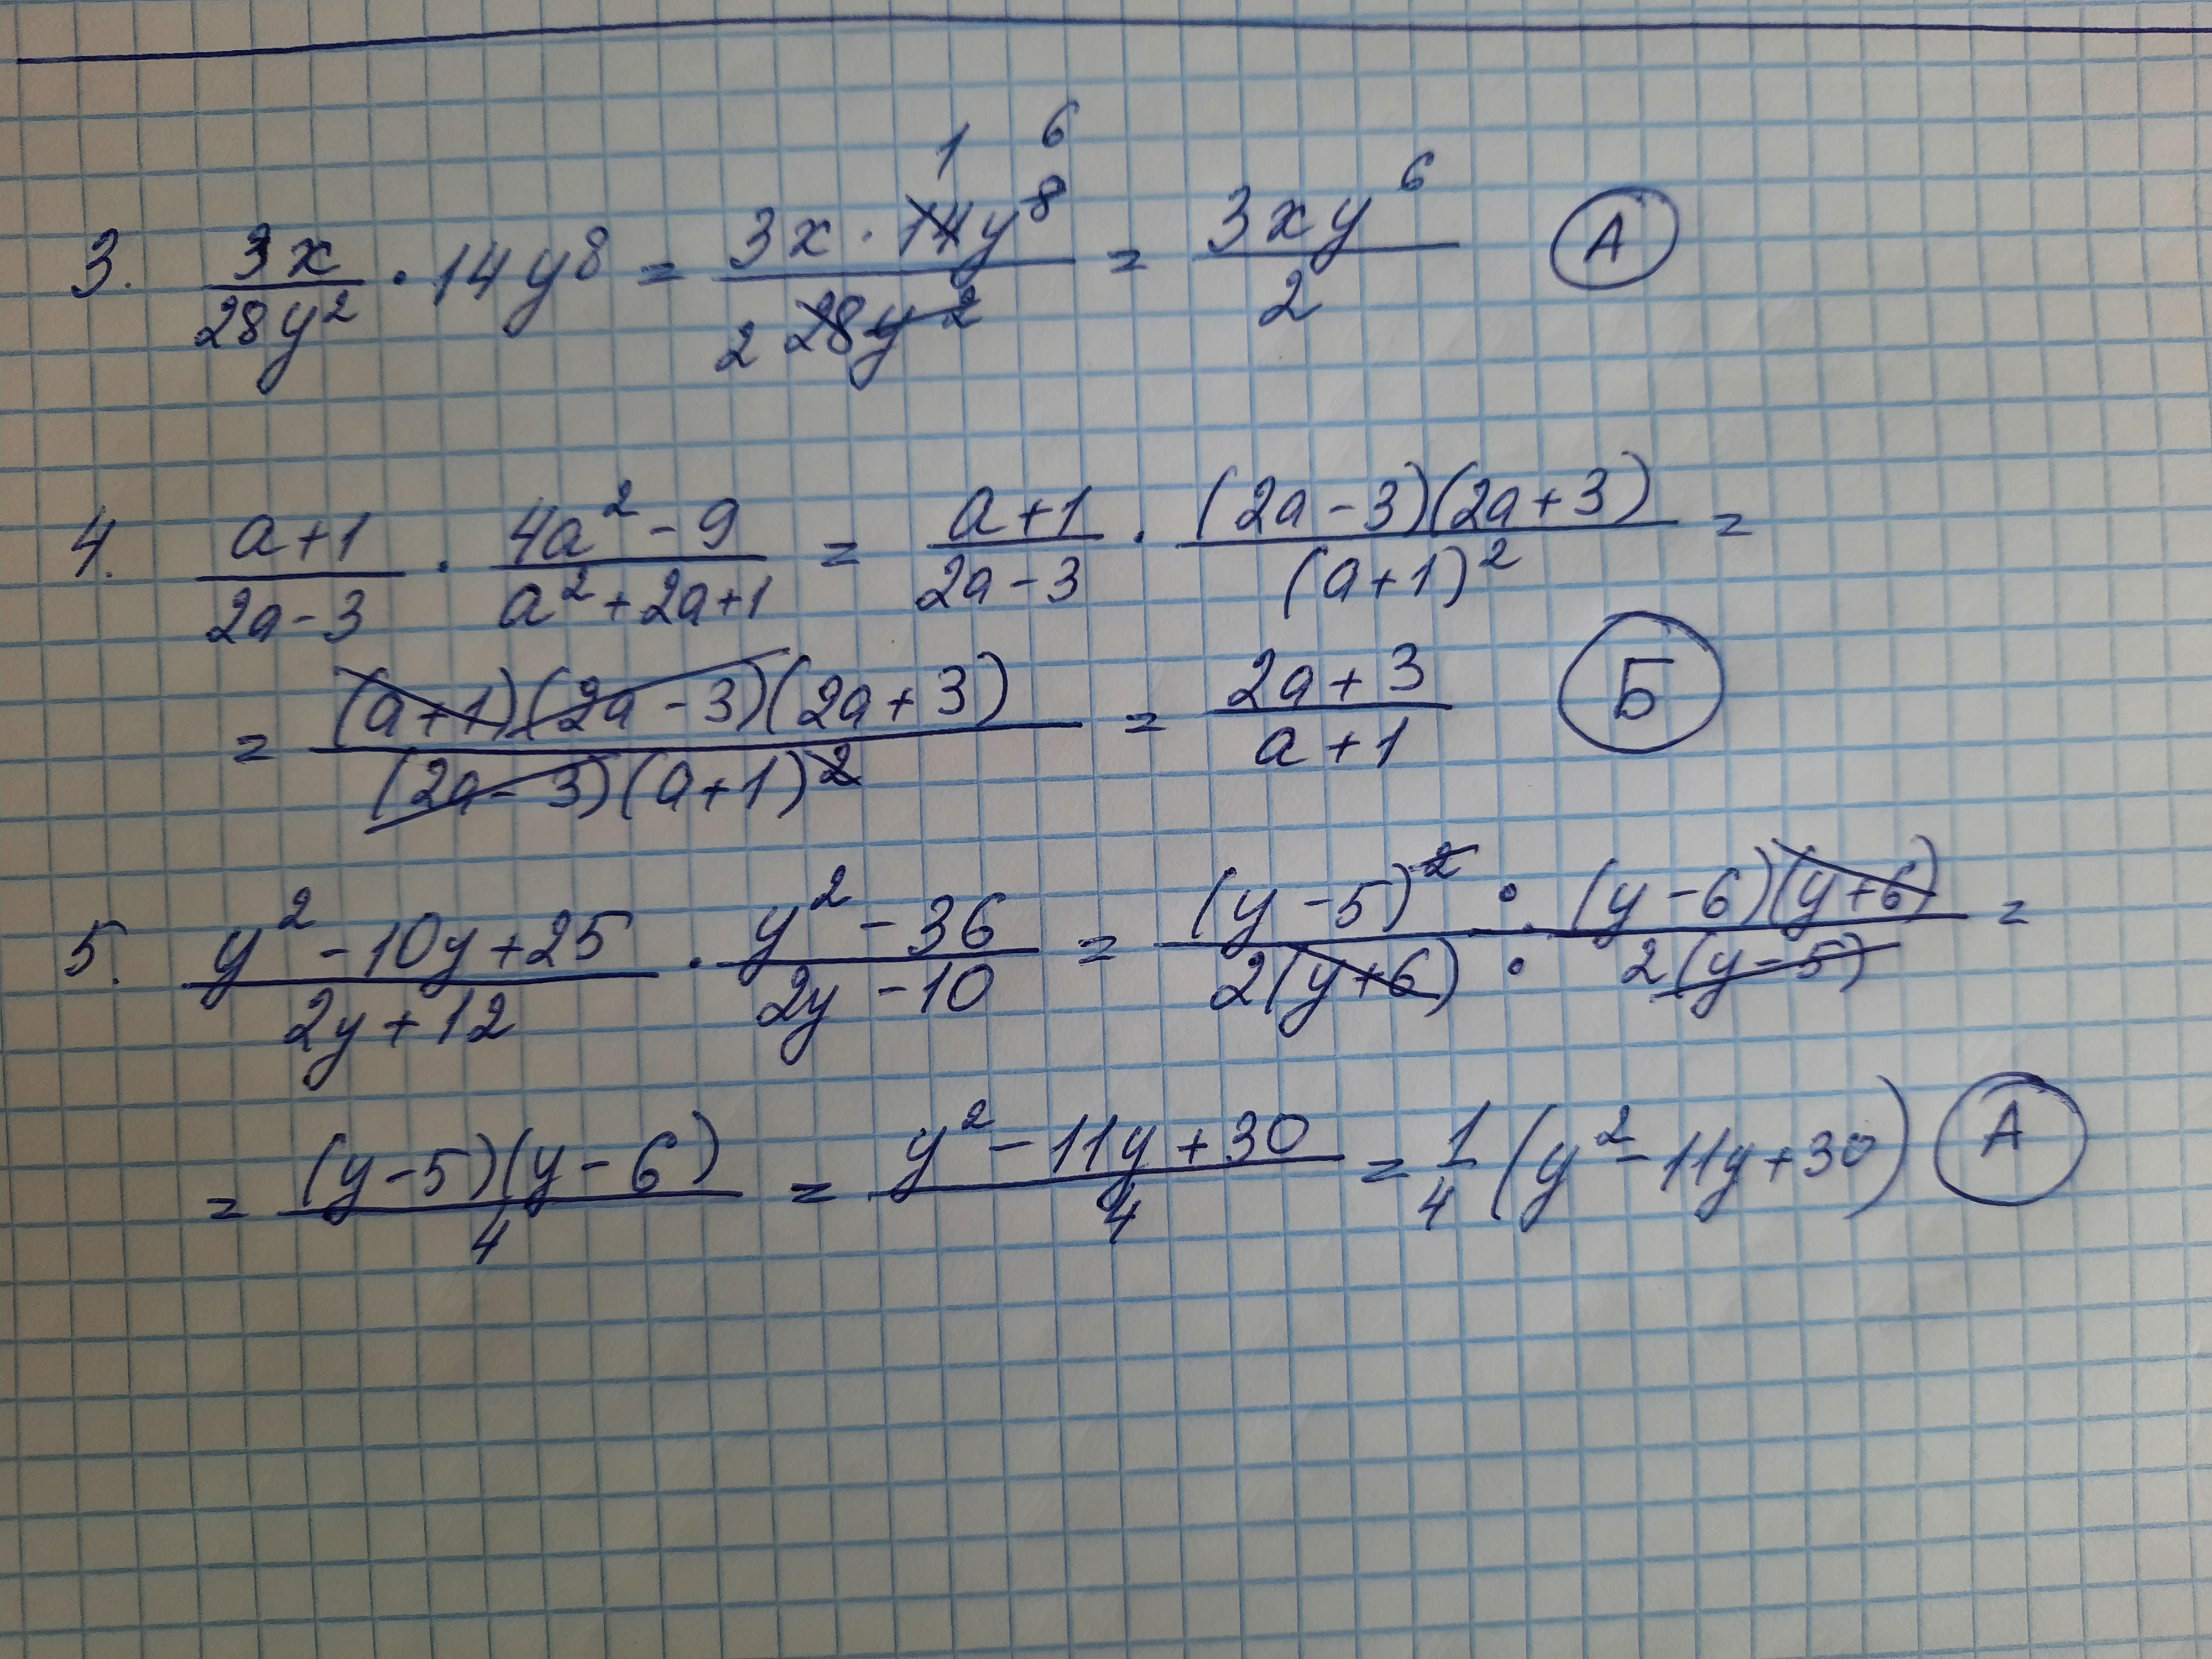 3. 3x/28y² · 14y⁸ = 3x · 14y⁸/28y² = 3xy⁶/2 А
4. a+1/2a-3 · 4a²-9/a²+2a+1 = a+1/2a-3 · (2a-3)(2a+3)/(a+1)² =
= (a+1)(2a-3)(2a+3)/(2a-3)(a+1)² = 2a+3/a+1 Б
5. y²-10y+25/2y+12 · y²-36/2y-10 = (y-5)² · (y-6)(y+6)/2(y+6) · 2(y-5) =
= (y-5)(y-6)/4 = y²-11y+30/4 = 1/4 (y²-11y+30) А